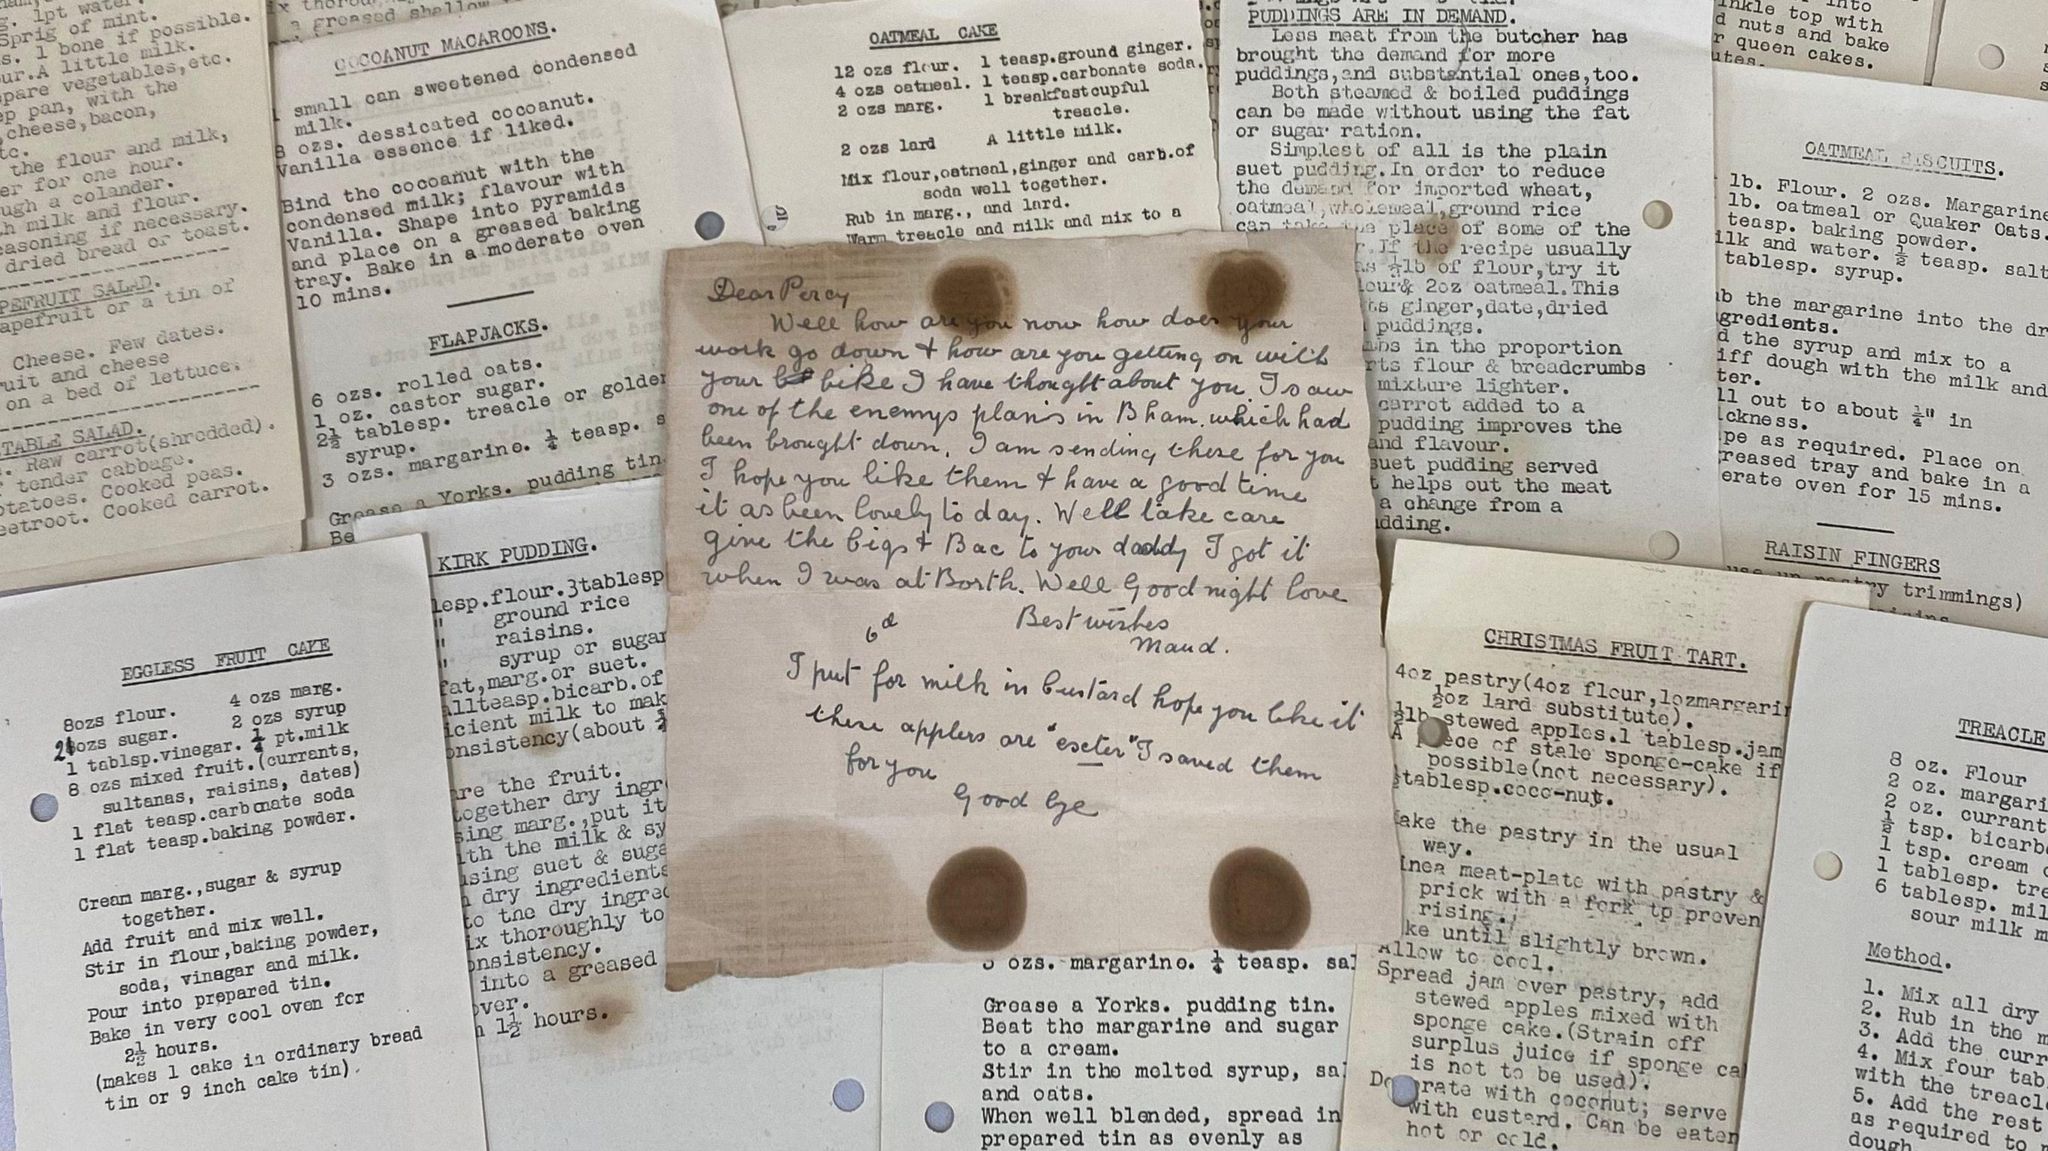 1pt water.
Sprig of mint.
1 bone if possible.
A little milk.
pare vegetables,etc.
pan, with the
cheese,bacon,
the flour and milk,
er for one hour.
ugh a colander.
milk and flour.
easoning if necessary.
dried bread or toast.
PEFRUIT SALAD.
apefruit or a tin of
Cheese. Few dates.
ruit and cheese
on a bed of lettuce.
TABLE SALAD.
Raw carrot(shredded).
tender cabbage.
otatoes. Cooked peas.
eetroot. Cooked carrot.
a greased shallow
COCOANUT MACAROONS.
small can sweetened condensed
milk.
8 ozs. dessicated cocoanut.
Vanilla essence if liked.
Bind the cocoanut with the
condensed milk; flavour with
Vanilla. Shape into pyramids
and place on a greased baking
tray. Bake in a moderate oven
10 mins.
FLAPJACKS.
6 ozs. rolled oats.
1 oz. castor sugar.
2½ tablesp. treacle or golden
syrup.
3 ozs. margarine. ¼ teasp. s
Grease a Yorks. pudding tin.
Be
OATMEAL CAKE
12 ozs flour. 1 teasp.ground ginger.
4 ozs oatmeal. 1 teasp.carbonate soda.
2 ozs marg. 1 breakfastcupful
treacle.
2 ozs lard A little milk.
Mix flour,oatmeal,ginger and carb.of
soda well together.
Rub in marg., and lard.
Warm treacle and milk and mix to a
PUDDINGS ARE IN DEMAND.
Less meat from the butcher has
brought the demand for more
puddings,and substantial ones,too.
Both steamed & boiled puddings
can be made without using the fat
or sugar ration.
Simplest of all is the plain
suet pudding.In order to reduce
the demand for imported wheat,
oatmeal,wholemeal,ground rice
can take the place of some of the
r.If the recipe usually
½lb of flour,try it
lour& 2oz oatmeal.This
ts ginger,date,dried
puddings.
mbs in the proportion
rts flour & breadcrumbs
mixture lighter.
carrot added to a
pudding improves the
and flavour.
suet pudding served
t helps out the meat
a change from a
udding.
inkle top with
nuts and bake
r queen cakes.
utes.
OATMEAL BISCUITS.
lb. Flour. 2 ozs. Margarine
lb. oatmeal or Quaker Oats.
teasp. baking powder.
ilk and water. ½ teasp. salt
tablesp. syrup.
ub the margarine into the dr
gredients.
d the syrup and mix to a
iff dough with the milk and
ter.
ll out to about ¼" in
ickness.
pe as required. Place on
greased tray and bake in a
erate oven for 15 mins.
RAISIN FINGERS
use up pastry trimmings)
Dear Percy
Well how are you now how does your
work go down & how are you getting on with
your bike I have thought about you. I saw
one of the enemys plans in Bham. which had
been brought down. I am sending these for you
I hope you like them & have a good time
it as been lovely to day. Well take care
give the bigs & Bac to your daddy I got it
when I was at Borth. Well Good night love
Best wishes
6d
Maud.
I put for milk in custard hope you like it
these applers are "exeter" I saved them
for you
Good bye
EGGLESS FRUIT CAKE
8ozs flour. 4 ozs marg.
2ozs sugar. 2 ozs syrup
1 tablsp.vinegar. ¼ pt.milk
8 ozs mixed fruit.(currants,
sultanas, raisins, dates)
1 flat teasp.carbonate soda
1 flat teasp.baking powder.
Cream marg.,sugar & syrup
together.
Add fruit and mix well.
Stir in flour,baking powder,
soda, vinegar and milk.
Pour into prepared tin.
Bake in very cool oven for
2½ hours.
(makes 1 cake in ordinary bread
tin or 9 inch cake tin).
KIRK PUDDING.
lesp.flour.3tablesp
ground rice
raisins.
syrup or sugar
fat,marg.or suet.
allteasp.bicarb.of
icient milk to mak
onsistency(about
are the fruit.
together dry ingr
sing marg.,put it
ith the milk & sy
using suet & suga
dry ingredients
to the dry ingred
ix thoroughly to
onsistency.
into a greased
over.
1½ hours.
3 ozs. margarine. ¼ teasp. sal
Grease a Yorks. pudding tin.
Beat the margarine and sugar
to a cream.
Stir in the melted syrup, sal
and oats.
When well blended, spread in
prepared tin as evenly as
CHRISTMAS FRUIT TART.
4oz pastry(4oz flour,1ozmargarin
½oz lard substitute).
½lb stewed apples.1 tablesp.jam
A piece of stale sponge-cake if
possible(not necessary).
½tablesp.coco-nut.
Make the pastry in the usual
way.
Linea meat-plate with pastry &
prick with a fork tp proven
rising.
ke until slightly brown.
Allow to cool.
Spread jam over pastry, add
stewed apples mixed with
sponge cake.(Strain off
surplus juice if sponge ca
is not to be used).
Decorate with coconut; serve
with custard. Can be eaten
hot or cold.
TREACLE
8 oz. Flour
2 oz. margari
2 oz. currant
½ tsp. bicarb
1 tsp. cream
1 tablesp. tre
6 tablesp. mil
sour milk m
Method.
1. Mix all dry
2. Rub in the m
3. Add the curr
4. Mix four tab
with the treacle
5. Add the rest
as required to
dough